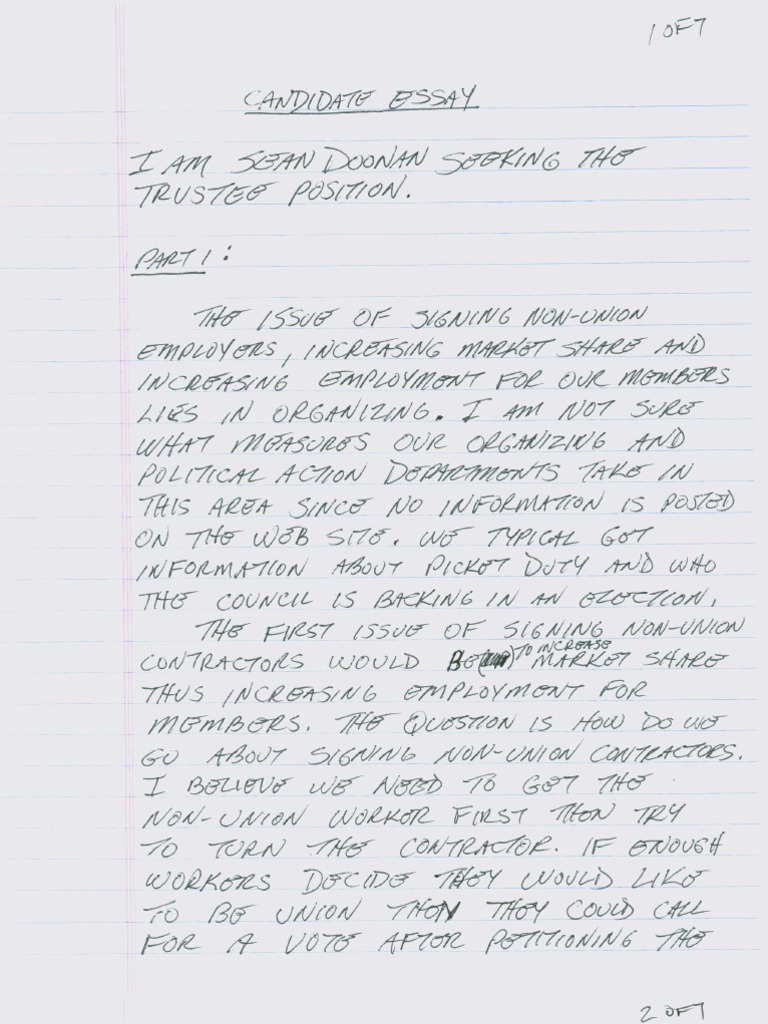 1 OF 7
CANDIDATE ESSAY
I AM SEAN DOONAN SEEKING THE
TRUSTEE POSITION.
PART 1:
THE ISSUE OF SIGNING NON-UNION
EMPLOYERS, INCREASING MARKET SHARE AND
INCREASING EMPLOYMENT FOR OUR MEMBERS
LIES IN ORGANIZING. I AM NOT SURE
WHAT MEASURES OUR ORGANIZING AND
POLITICAL ACTION DEPARTMENTS TAKE IN
THIS AREA SINCE NO INFORMATION IS POSTED
ON THE WEB SITE. WE TYPICAL GET
INFORMATION ABOUT PICKET DUTY AND WHO
THE COUNCIL IS BACKING IN AN ELECTION.
THE FIRST ISSUE OF SIGNING NON-UNION
CONTRACTORS WOULD BE TO INCREASE MARKET SHARE
THUS INCREASING EMPLOYMENT FOR
MEMBERS. THE QUESTION IS HOW DO WE
GO ABOUT SIGNING NON-UNION CONTRACTORS.
I BELIEVE WE NEED TO GET THE
NON-UNION WORKER FIRST THEN TRY
TO TURN THE CONTRACTOR. IF ENOUGH
WORKERS DECIDE THEY WOULD LIKE
TO BE UNION THEN THEY COULD CALL
FOR A VOTE AFTER PETITIONING THE
2 OF 7